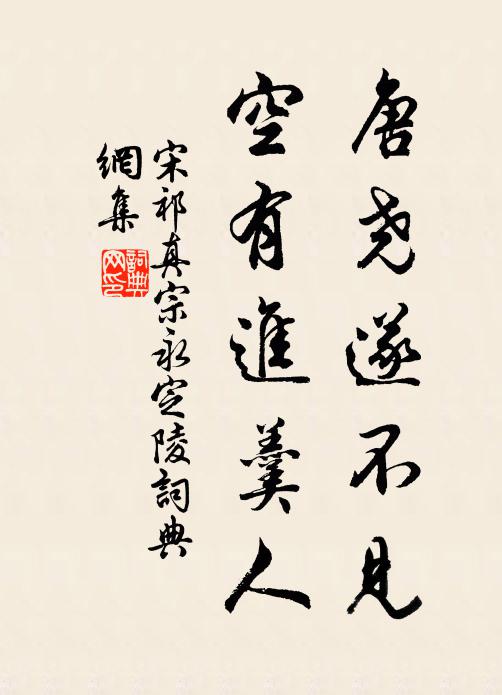 唐尧遂不见
空有進羹人
宋祁真宗永定陵詞典
網集
詞典
网印